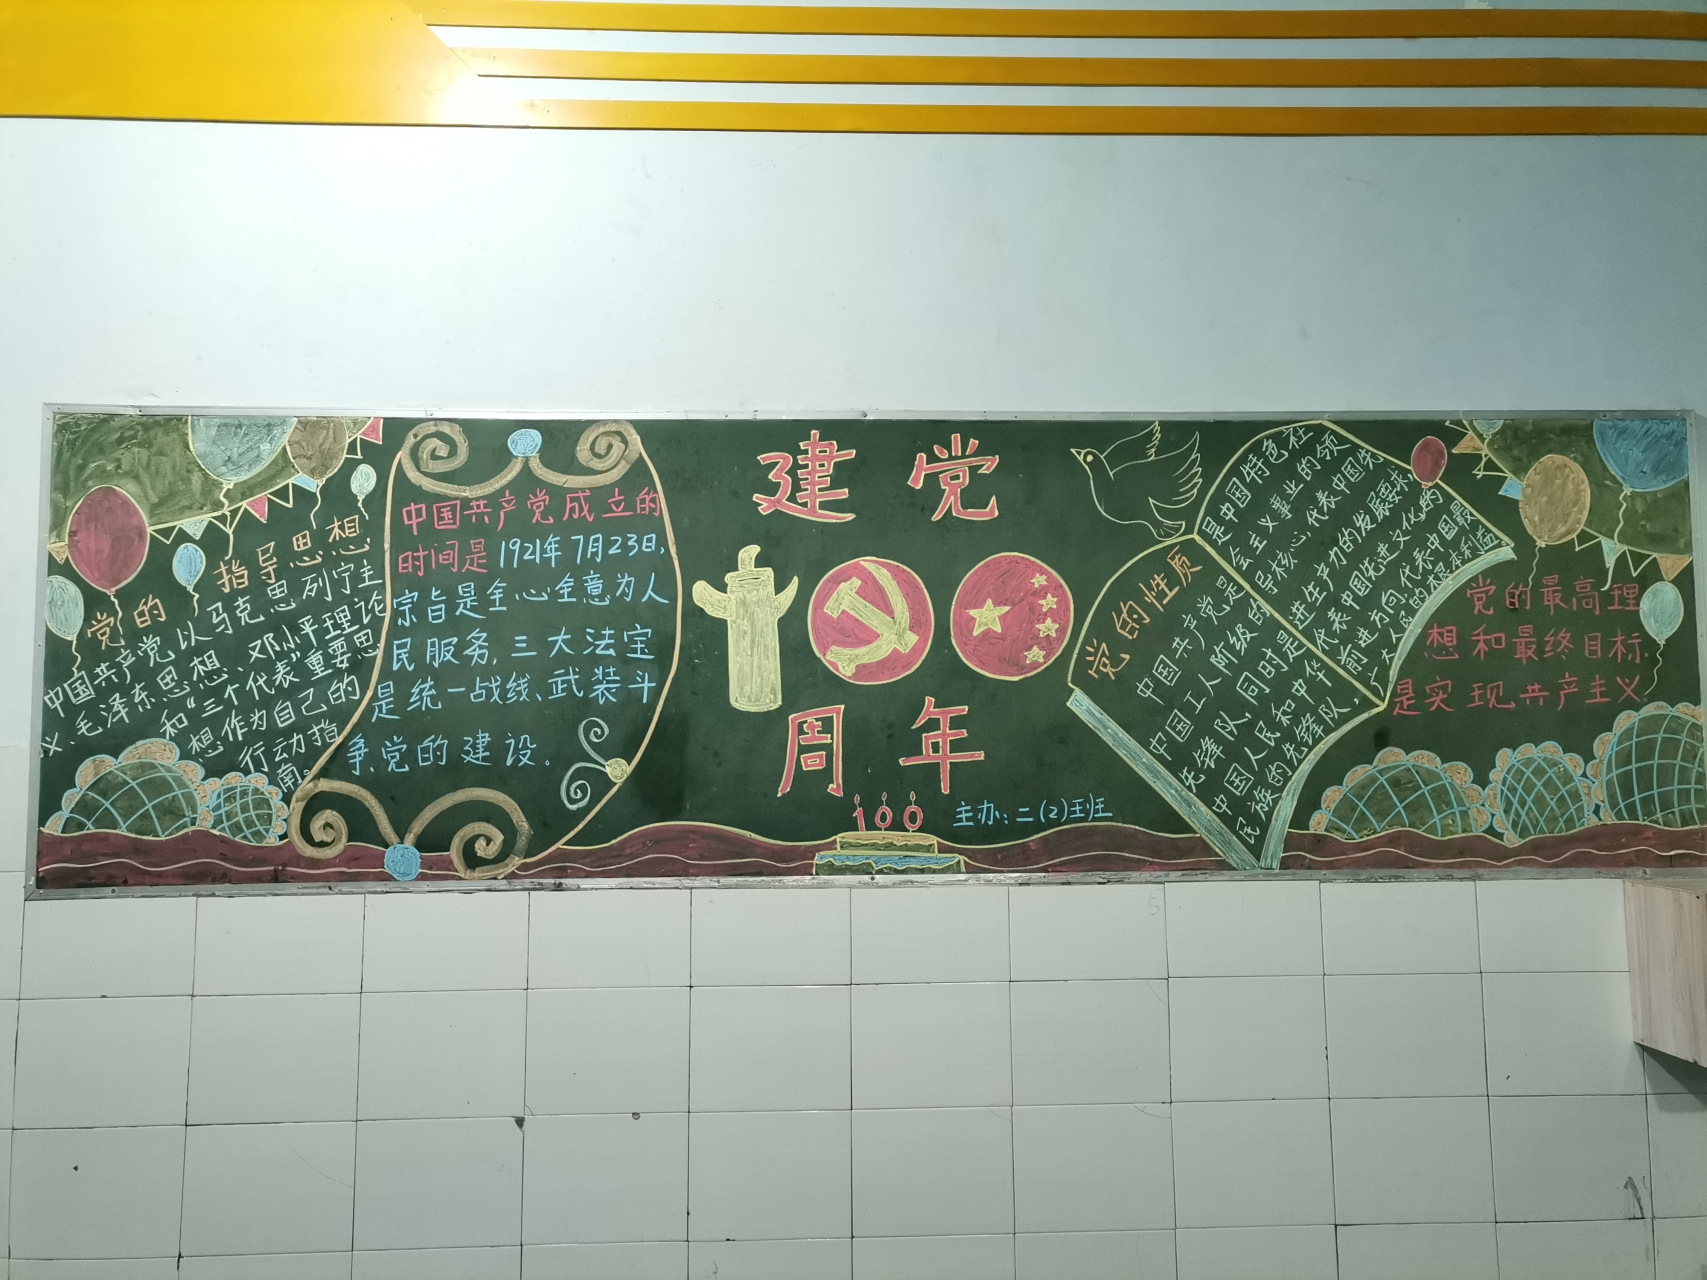 党的指导思想
中国共产党以马克思列宁主
义、毛泽东思想、邓小平理论
和“三个代表”重要思
想作为自己的
行动指
南。
中国共产党成立的
时间是1921年7月23日,
宗旨是全心全意为人
民服务,三大法宝
是统一战线、武装斗
争、党的建设。
建党
周年
100
主办:二(2)班
党的性质
中国共产党是
中国工人阶级的
先锋队,同时是
中国人民和中华
民族的先锋队,
是中国特色社
会主义事业的领
导核心,代表中国先
进生产力的发展要求,
代表中国先进文化的
前进方向,代表中国最
广大人民的根本利益。
党的最高理
想和最终目标
是实现共产主义。